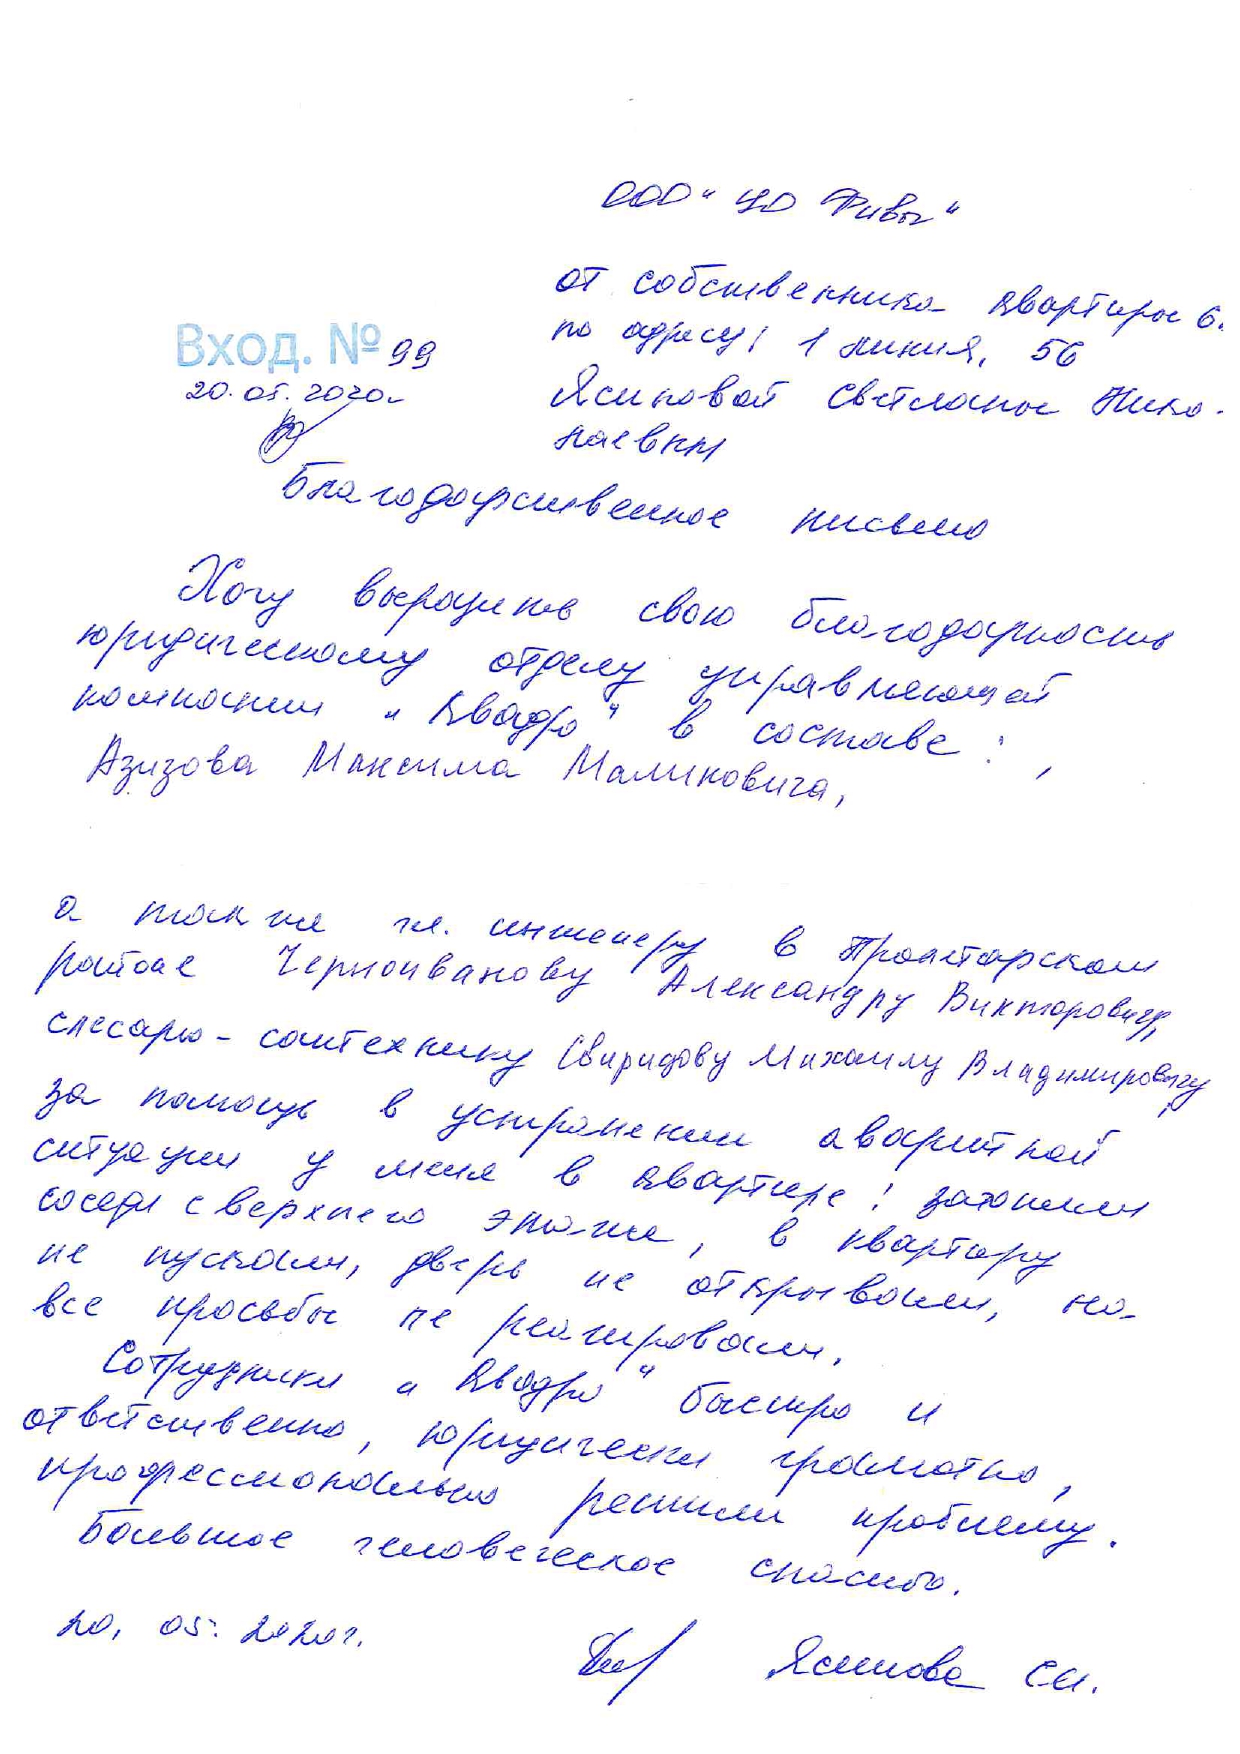 ООО "ЦО Фивы"
от собственника квартиры 6.
по адресу: 1 линия, 56
Ясиновой Светланы Нико-
лаевны
Вход. № 99
20.05.2020г
Благодарственное письмо
Хочу выразить свою благодарность
юридическому отделу управляющей
компании "Квадро" в составе:
Азизова Максима Маликовича,
а также гл. инженеру в Пролетарском
районе Черноиванову Александру Викторовичу,
слесарю-сантехнику Свиридову Михаилу Владимировичу,
за помощь в устранении аварийной
ситуации у меня в квартире: затопили
соседи с верхнего этажа, в квартиру
не пускали, дверь не открывали, на
все просьбы не реагировали.
Сотрудники "Квадро" быстро и
ответственно, юридически грамотно,
профессионально решили проблему.
Большое человеческое спасибо.
20.05.2020г.
Ясинова С.Н.